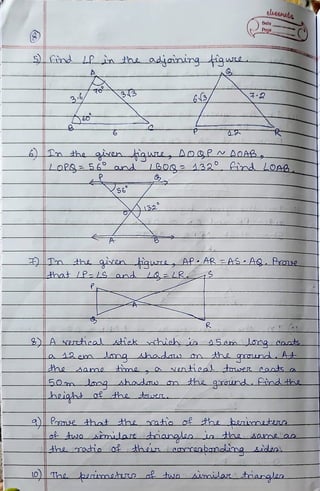 classmate
Date
Page
8
5) Find ∠P in the adjoining figure.
A
Q
70°
3.6
3√3
6√3
7.2
60°
B
6
C
P
12
R
6) In the given figure, △OQP ~ △OAB,
∠OPQ = 56° and ∠BOQ = 132°. Find ∠OAB.
P
Q
56°
O
132°
A
B
7) In the given figure, AP • AR = AS • AQ. Prove
that ∠P = ∠S and ∠Q = ∠R.
S
P
A
Q
R
8) A vertical stick which is 15cm long casts
a 12cm long shadow on the ground. At
the same time, a vertical tower casts a
50m long shadow on the ground. Find the
height of the tower.
9) Prove that the ratio of the perimeters
of two similar triangles is the same as
the ratio of their corresponding sides.
10) The perimeters of two similar triangles